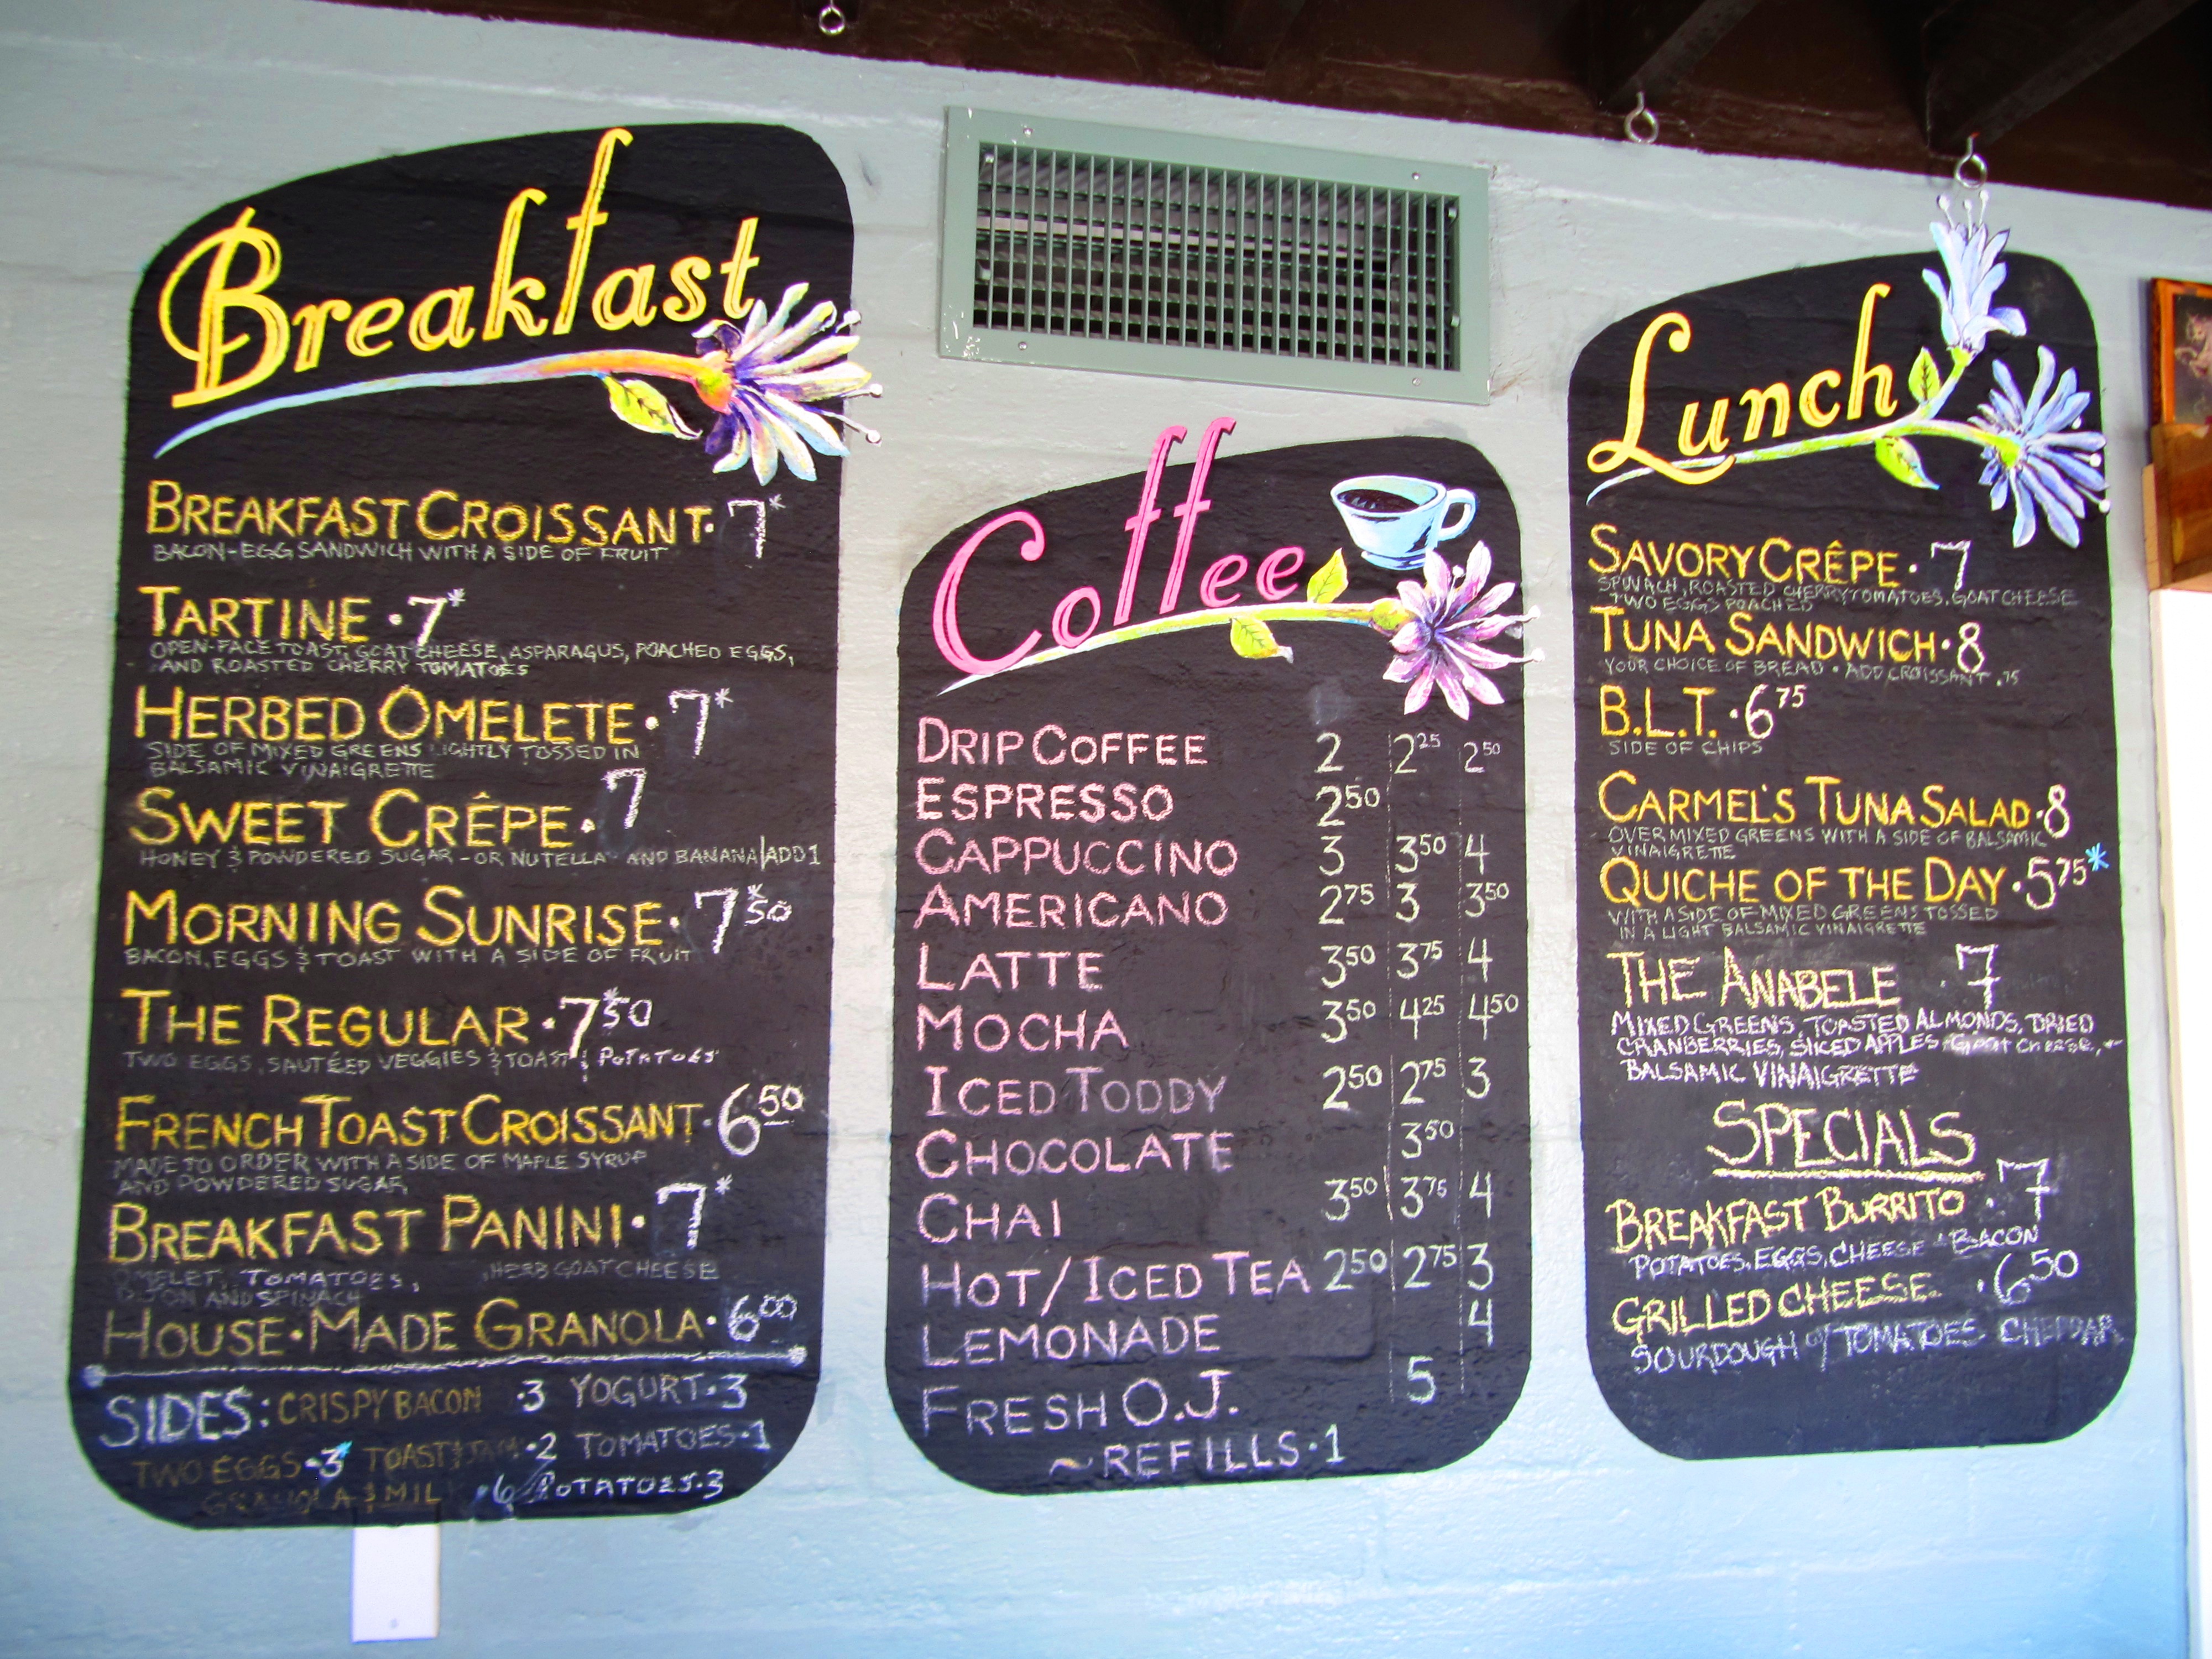 Breakfast
BREAKFAST CROISSANT · 7*
BACON-EGG SANDWICH WITH A SIDE OF FRUIT
TARTINE · 7*
OPEN-FACE TOAST, GOAT CHEESE, ASPARAGUS, POACHED EGGS,
AND ROASTED CHERRY TOMATOES
HERBED OMELETE · 7*
SIDE OF MIXED GREENS LIGHTLY TOSSED IN
BALSAMIC VINAIGRETTE
SWEET CRÊPE · 7*
HONEY & POWDERED SUGAR - OR NUTELLA AND BANANA | ADD 1
MORNING SUNRISE · 7*50
BACON, EGGS & TOAST WITH A SIDE OF FRUIT
THE REGULAR · 7*50
TWO EGGS, SAUTÉED VEGGIES & TOAST & POTATOES
FRENCH TOAST CROISSANT · 6 50
MADE TO ORDER WITH A SIDE OF MAPLE SYRUP
AND POWDERED SUGAR
BREAKFAST PANINI · 7*
OMELET, TOMATOES, , HERB GOAT CHEESE
AND SPINACH
HOUSE·MADE GRANOLA · 6 00
SIDES: CRISPY BACON · 3 YOGURT · 3
TWO EGGS · 3 TOAST & JAM · 2 TOMATOES · 1
GRANOLA & MIL · 6 POTATOES · 3
Coffee
DRIP COFFEE 2 2 25 2 50
ESPRESSO 2 50
CAPPUCCINO 3 3 50 4
AMERICANO 2 75 3 3 50
LATTE 3 50 3 75 4
MOCHA 3 50 4 25 4 50
ICED TODDY 2 50 2 75 3
CHOCOLATE 3 50
CHAI 3 50 3 75 4
HOT/ICED TEA 2 50 2 75 3
LEMONADE 4
FRESH O.J. 5
~REFILLS · 1
Lunch
SAVORY CRÊPE · 7
SPINACH, ROASTED CHERRY TOMATOES, GOAT CHEESE
TWO EGGS POACHED
TUNA SANDWICH · 8
YOUR CHOICE OF BREAD · ADD CROISSANT .75
B.L.T. · 6 75
SIDE OF CHIPS
CARMEL'S TUNA SALAD · 8
OVER MIXED GREENS WITH A SIDE OF BALSAMIC
VINAIGRETTE
QUICHE OF THE DAY · 5 75*
WITH A SIDE OF MIXED GREENS TOSSED
IN A LIGHT BALSAMIC VINAIGRETTE
THE ANABELE · 7
MIXED GREENS, TOASTED ALMONDS, DRIED
CRANBERRIES, SLICED APPLES, Goat cheese, +
BALSAMIC VINAIGRETTE
SPECIALS
BREAKFAST BURRITO · 7
POTATOES, EGGS, CHEESE + BACON
GRILLED CHEESE · 6 50
SOURDOUGH w/ TOMATOES CHEDDAR